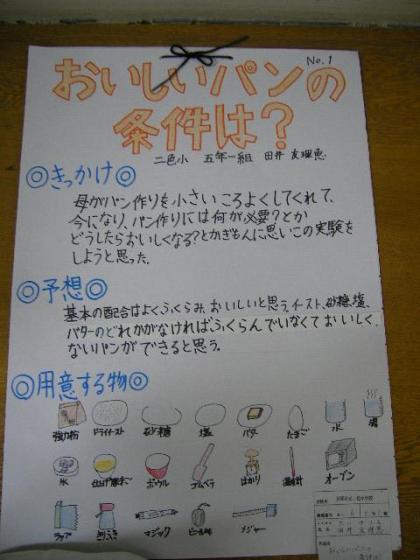 No.1
おいしいパンの
条件は?
二色小 五年一組 田井 友理恵
◎きっかけ◎
母がパン作りを小さいころよくしてくれて、
今になり、パン作りには何が必要?とか
どうしたらおいしくなる?とかぎもんに思いこの実験を
しようと思った。
◎予想◎
基本の配合はよくふくらみ、おいしいと思う。イースト、砂糖、塩、
バターのどれかがなければふくらんでいなくておいしく
ないパンができると思う。
◎用意する物◎
強力粉 ドライイースト 砂糖 塩 バター たまご 水 湯
氷 ボウル ゴムベラ はかり 温度計 オーブン
ラップ きりふき マジック ビー玉 メジャー